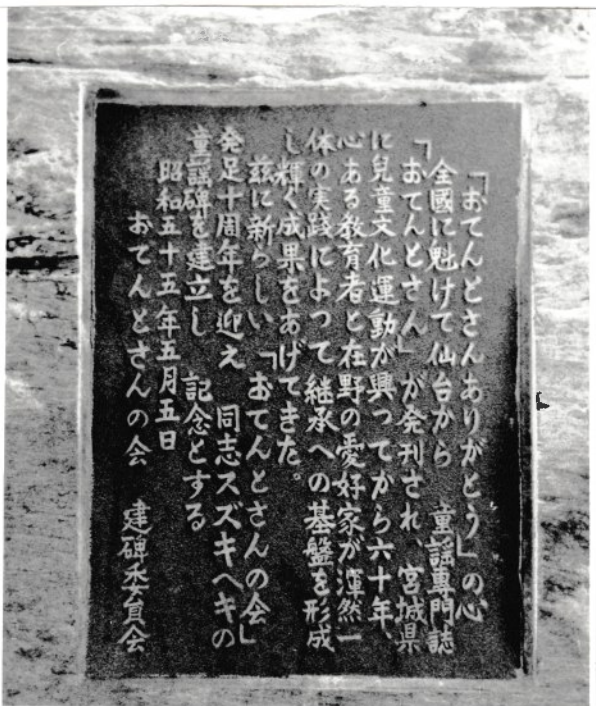 「おてんとさんありがとう」の心
全國に魁けて仙台から　童謡専門誌
「おてんとさん」が発刊され、宮城県
に児童文化運動が興ってから六十年、
心ある教育者と在野の愛好家が渾然一
体の実践によって継承への基盤を形成
し輝く成果をあげてきた。
茲に新らしい「おてんとさんの会」
発足十周年を迎え　同志スズキヘキの
童謡碑を建立し　記念とする
昭和五十五年五月五日
おてんとさんの会　建碑委員会